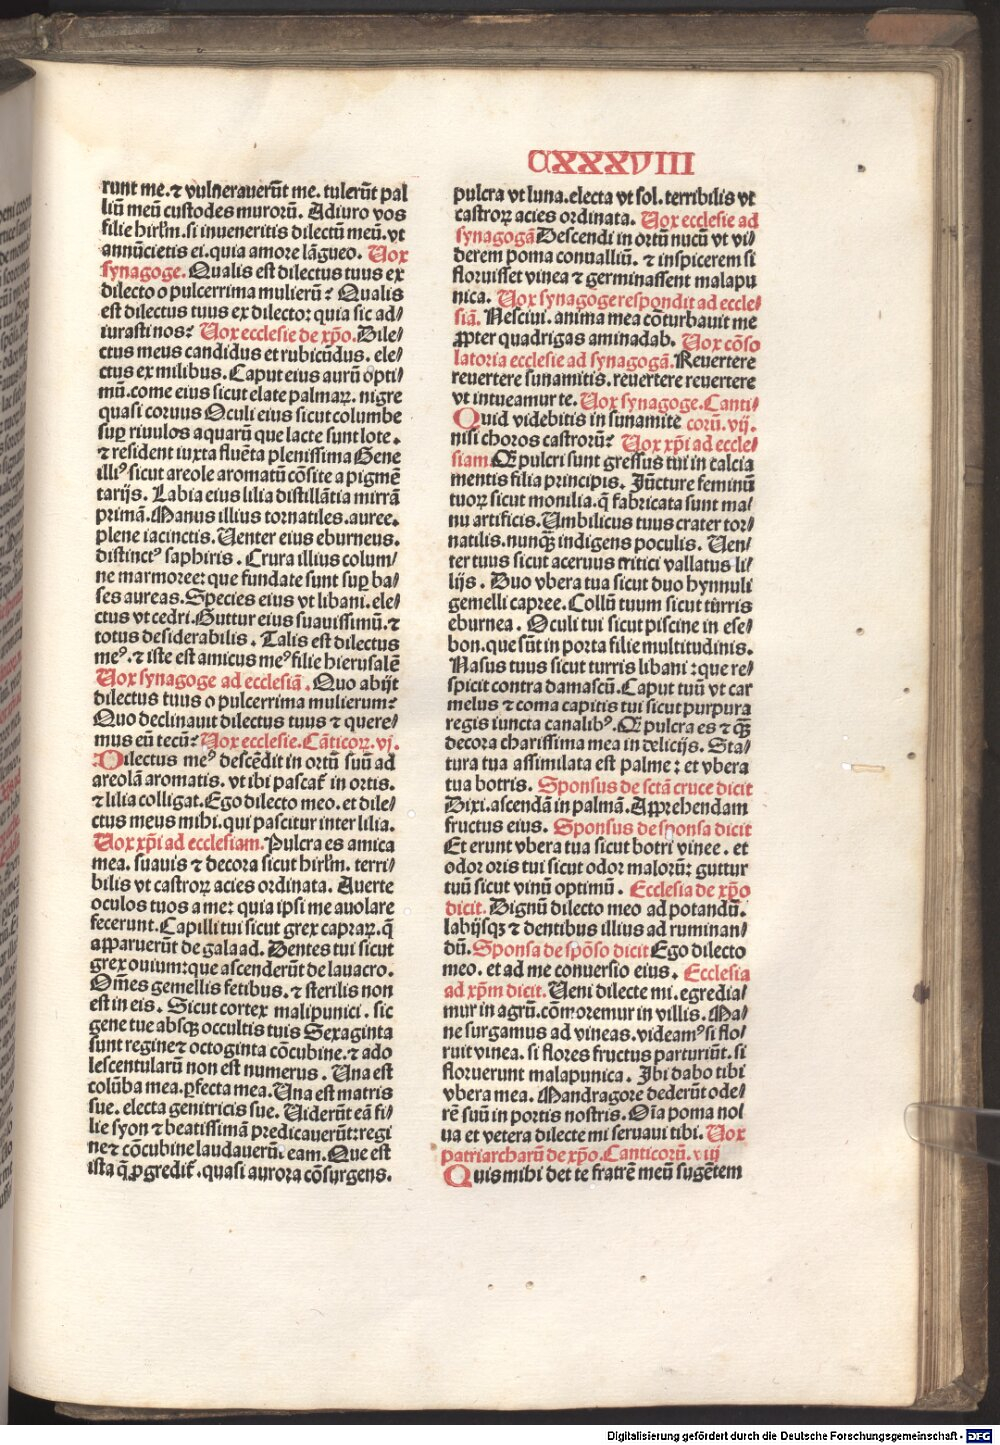 CXXXVIII
runt me. ⁊ vulnerauerūt me. tulerūt pal
liū meū custodes murorū. Adiuro vos
filie hirl̄m. si inueneritis dilectū meū. vt
annūcietis ei. quia amore lāgueo. Uox
synagoge. Qualis est dilectus tuus ex
dilecto o pulcerrima mulierū? Qualis
est dilectus tuus ex dilecto: quia sic ad/
iurasti nos? Uox ecclesie de xp̄o. Dile/
ctus meus candidus et rubicūdus. ele/
ctus ex milibus. Caput eius aurū opti/
mū. come eius sicut elate palmaꝝ. nigre
quasi coruus Oculi eius sicut columbe
suꝑ riuulos aquarū que lacte sunt lote.
⁊ resident iuxta fluēta plenissima Gene
illiꝰ sicut areole aromatū cōsite a pigmē
tarijs. Labia eius lilia distillātia mirrā
primā. Manus illius tornatiles. auree.
plene iacinctis. Uenter eius eburneus.
distinctꝰ saphiris. Crura illius colum/
ne marmoree: que fundate sunt suꝑ ba/
ses aureas. Species eius vt libani. ele/
ctus vt cedri. Guttur eius suauissimū. ⁊
totus desiderabilis. Talis est dilectus
meꝰ. ⁊ iste est amicus meꝰ filie hierusalē
Uox synagoge ad ecclesiā. Quo abijt
dilectus tuus o pulcerrima mulierum?
Quo declinauit dilectus tuus ⁊ quere/
mus eū tecū? Uox ecclesie. Cāticoꝝ. vj.
Dilectus meꝰ descēdit in ortū suū ad
areolā aromatis. vt ibi pascat̄ in ortis.
⁊ lilia colligat. Ego dilecto meo. et dile/
ctus meus mihi. qui pascitur inter lilia.
Uox xp̄i ad ecclesiam. Pulcra es amica
mea. suauis ⁊ decora sicut hirl̄m. terri/
bilis vt castroꝝ acies ordinata. Auerte
oculos tuos a me: quia ipsi me auolare
fecerunt. Capilli tui sicut grex capraꝝ. q̄
apparuerūt de galaad. Dentes tui sicut
grex ouium: que ascenderūt de lauacro.
Om̄es gemellis fetibus. ⁊ sterilis non
est in eis. Sicut cortex malipunici. sic
gene tue absqꝫ occultis tuis Sexaginta
sunt regine ⁊ octoginta cōcubine. ⁊ ado
lescentularū non est numerus. Una est
colūba mea. ꝑfecta mea. Una est matris
sue. electa genitricis sue. Uiderūt eā fi/
lie syon ⁊ beatissimā predicauerūt: regi
ne ⁊ cōcubine laudauerūt eam. Que est
ista q̄ ꝓgredit̄. quasi aurora cōsurgens.
pulcra vt luna. electa vt sol. terribilis vt
castroꝝ acies ordinata. Uox ecclesie ad
synagogā Descendi in ortū nucū vt vi/
derem poma conualliū. ⁊ inspicerem si
floruisset vinea ⁊ germinassent malapu
nica. Uox synagoge respondit ad eccle/
siā. Nesciui. anima mea cōturbauit me
ꝓpter quadrigas aminadab. Uox cōso
latoria ecclesie ad synagogā. Reuertere
reuertere sunamitis. reuertere reuertere
vt intueamur te. Uox synagoge. Canti/
Quid videbitis in sunamite corū. vij.
nisi choros castrorū? Uox xp̄i ad eccle/
siam Q̄ pulcri sunt gressus tui in calcia
mentis filia principis. Jūcture feminū
tuoꝝ sicut monilia. q̄ fabricata sunt ma/
nu artificis. Umbilicus tuus crater tor/
natilis. nunqꝫ̄ indigens poculis. Uen/
ter tuus sicut aceruus tritici vallatus li/
lijs. Duo vbera tua sicut duo hynnuli
gemelli capree. Collū tuum sicut turris
eburnea. Oculi tui sicut piscine in ese/
bon. que sūt in porta filie multitudinis.
Nasus tuus sicut turris libani: que re/
spicit contra damascū. Caput tuū vt car
melus ⁊ coma capitis tui sicut purpura
regis iuncta canalibꝰ. Q̄ pulcra es ⁊ qꝫ̄
decora charissima mea in delicijs. Sta/
tura tua assimilata est palme: et vbera
tua botris. Sponsus de sctā cruce dicit
Dixi. ascendā in palmā. Apprehendam
fructus eius. Sponsus de sponsa dicit
Et erunt vbera tua sicut botri vinee. et
odor oris tui sicut odor malorū: guttur
tuū sicut vinū optimū. Ecclesia de xp̄o
dicit. Dignū dilecto meo ad potandū.
labijsqꝫ ⁊ dentibus illius ad ruminan/
dū. Sponsa de spōso dicit Ego dilecto
meo. et ad me conuersio eius. Ecclesia
ad xp̄m dicit. Ueni dilecte mi. egredia/
mur in agrū. cōmoremur in villis. Ma/
ne surgamus ad vineas. videamꝰ si flo/
ruit vinea. si flores fructus parturiūt. si
floruerunt malapunica. Ibi dabo tibi
vbera mea. Mandragore dederūt odo/
rē suū in portis nostris. Oīa poma nol
ua et vetera dilecte mi seruaui tibi. Uox
patriarcharū de xp̄o. Canticorū. viij
Quis mihi det te fratrē meū sugētem
Digitalisierung gefördert durch die Deutsche Forschungsgemeinschaft - DFG